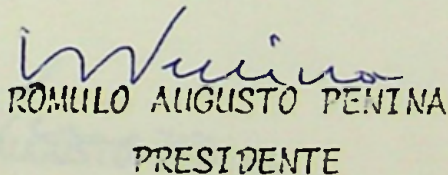 ROMULO AUGUSTO PENINA
PRESIDENTE